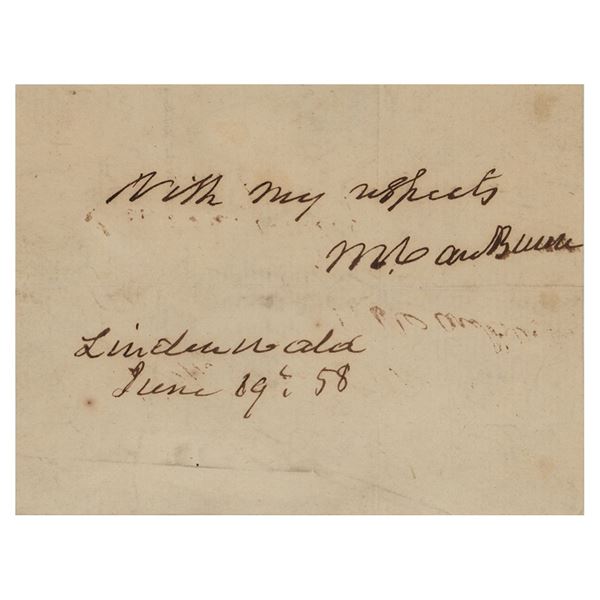 With my respects
M. Van Buren
Lindenwald
June 19th. 58